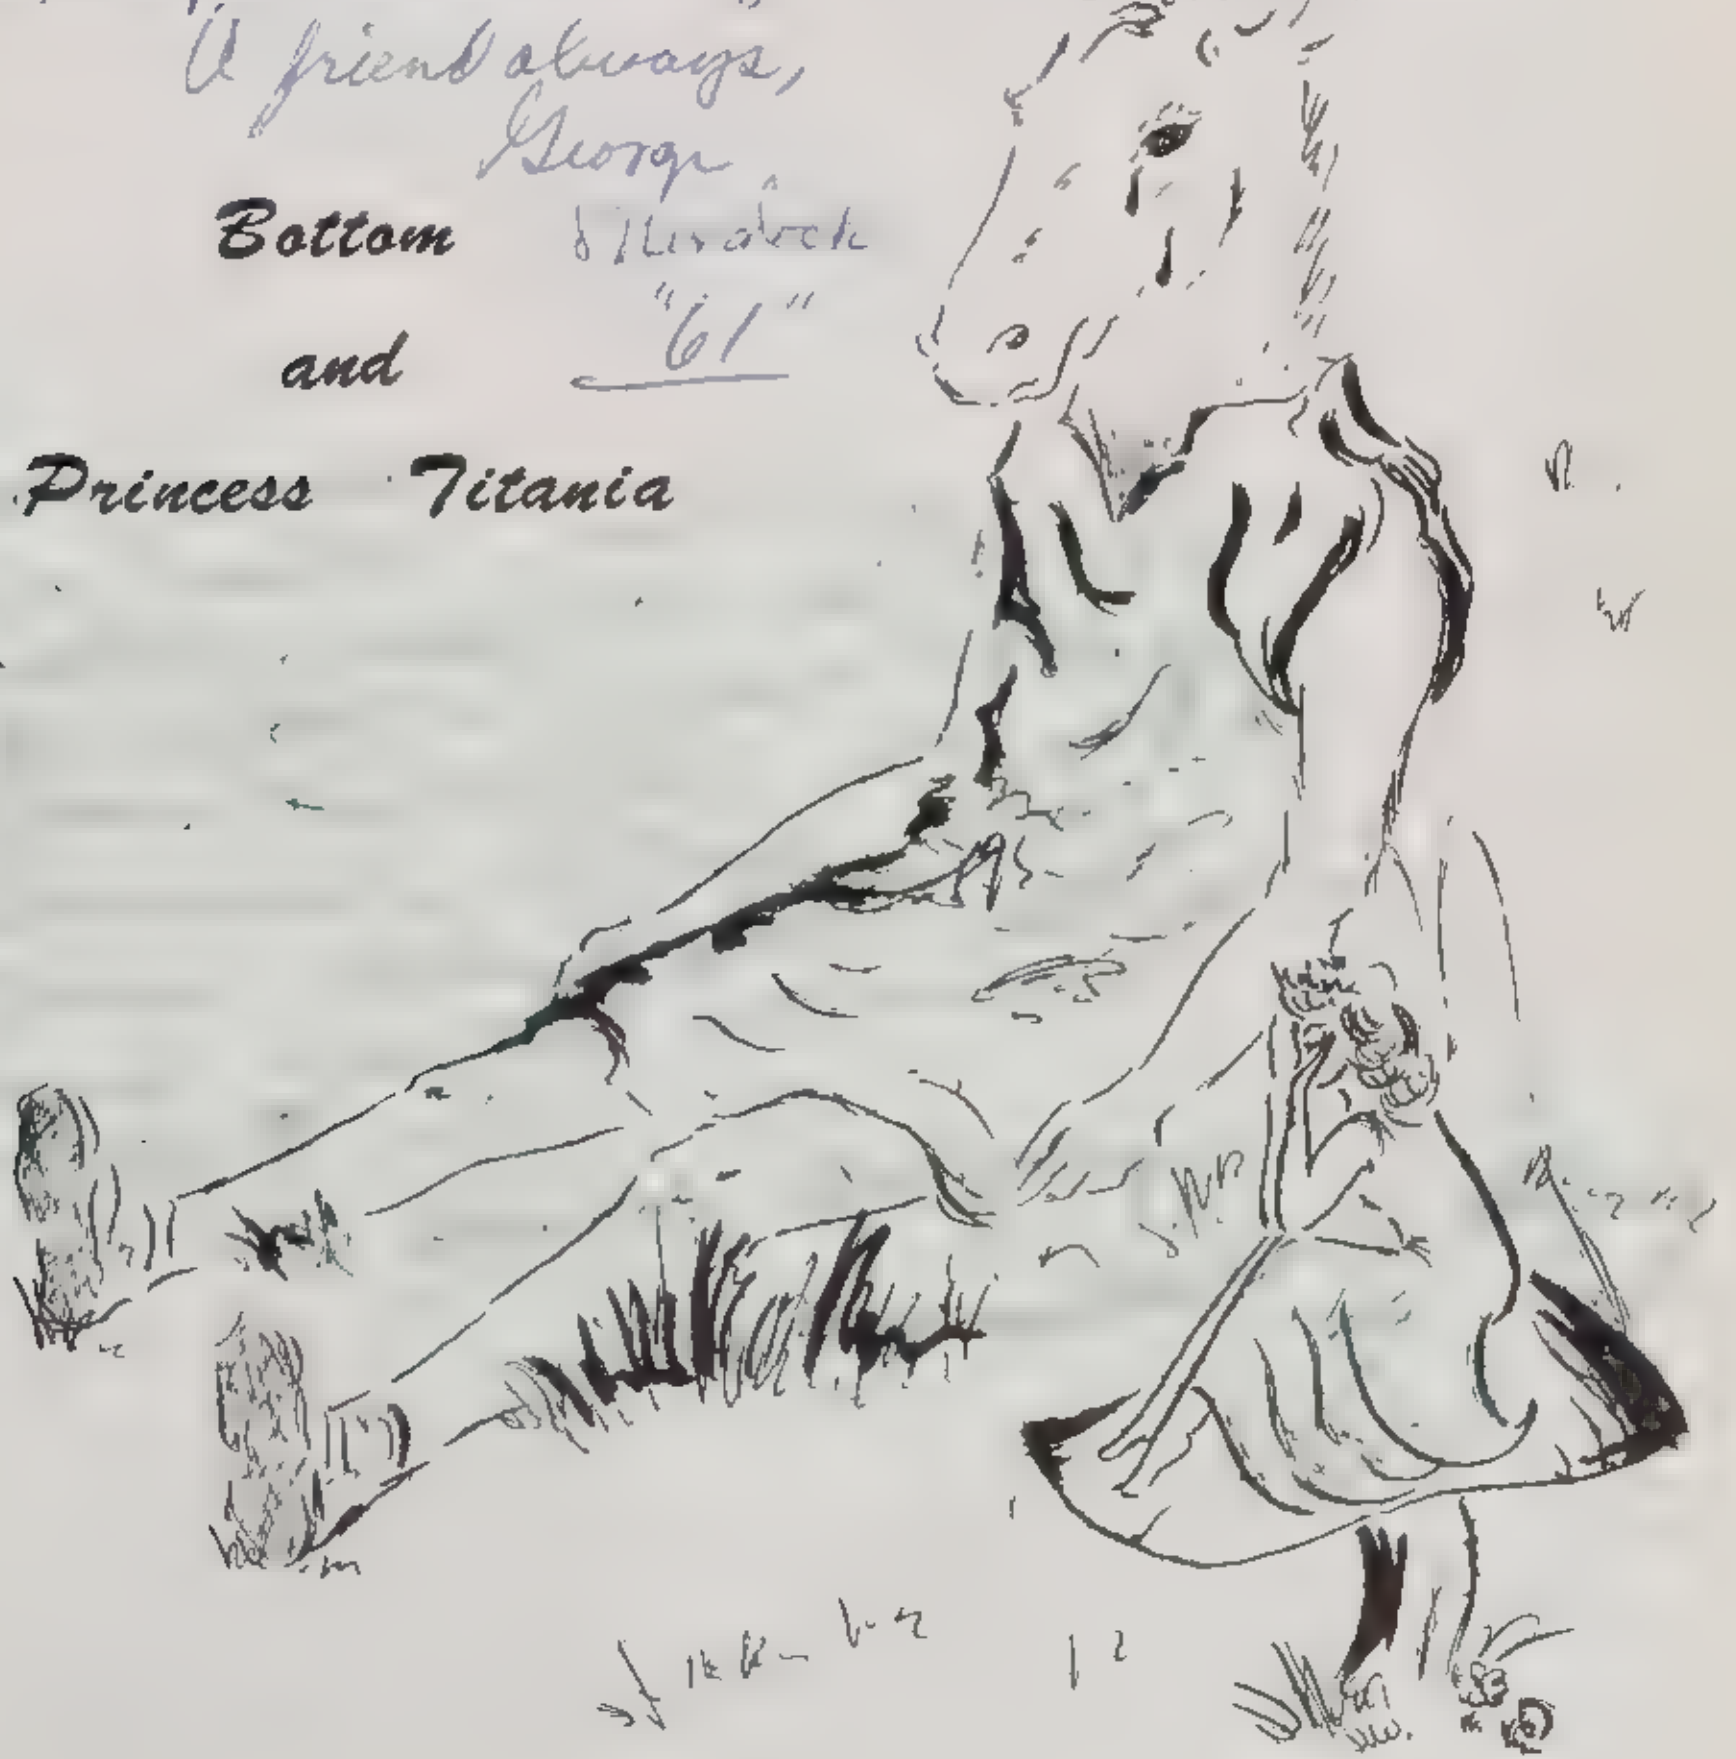 A friend always,
George
Murdock
"61"
Bottom
and
Princess Titania